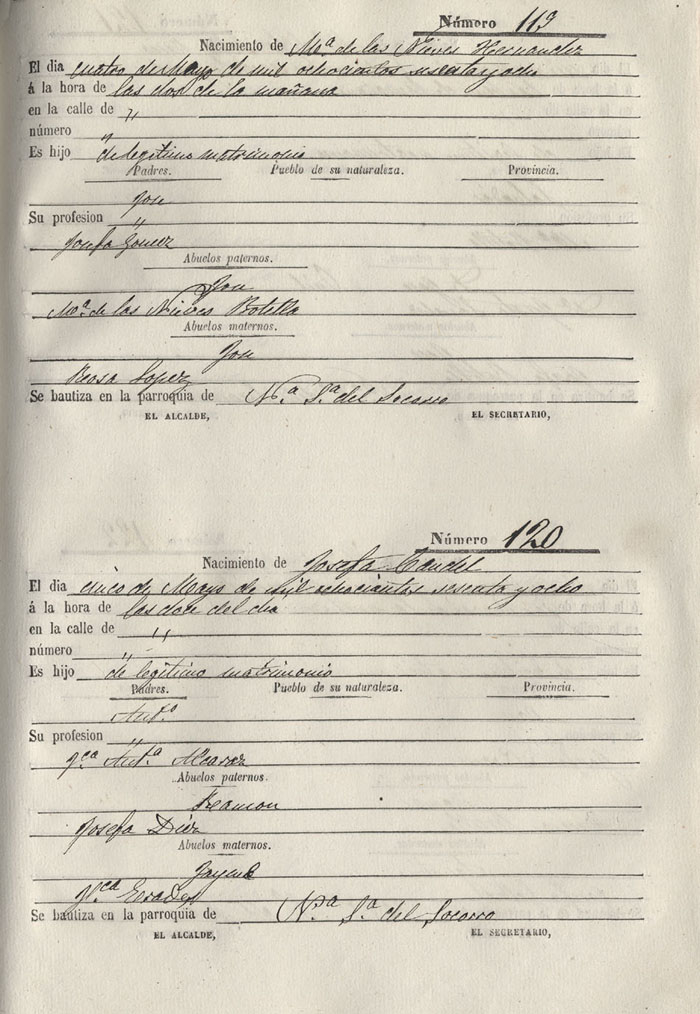 Número 119
Nacimiento de Mª de las Nieves Hernandez
El dia cuatro de Mayo de mil ochocientos sesenta y ocho
á la hora de las dos de la mañana
en la calle de "
número "
Es hijo de legitimo matrimonio
Padres. Pueblo de su naturaleza. Provincia.
Jose
Su profesion "
Josefa Gomez
Abuelos paternos.
Jose
Mª de las Nieves Botella
Abuelos maternos.
Jose
Rosa Lopez
Se bautiza en la parroquia de Nª Sª del Socorro
EL ALCALDE, EL SECRETARIO,
Número 120
Nacimiento de Josefa Candel
El dia cinco de Mayo de mil ochocientos sesenta y ocho
á la hora de las doce del dia
en la calle de "
número "
Es hijo de legitimo matrimonio
Padres. Pueblo de su naturaleza. Provincia.
Antº
Su profesion "
Antª
Abuelos paternos.
Ramon
Josefa
Abuelos maternos.
Jayme
Se bautiza en la parroquia de Nª Sª del Socorro
EL ALCALDE, EL SECRETARIO,